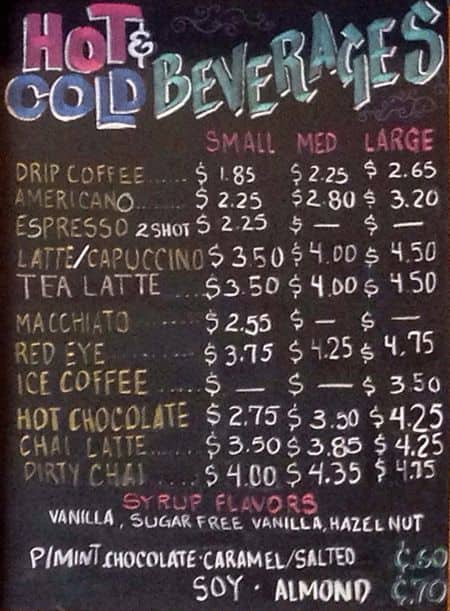 HOT & COLD BEVERAGES
SMALL MED LARGE
DRIP COFFEE...... $ 1.85 $ 2.25 $ 2.65
AMERICANO....... $ 2.25 $ 2.80 $ 3.20
ESPRESSO 2 SHOT $ 2.25 $ — $ —
LATTE/CAPUCCINO $ 3.50 $ 4.00 $ 4.50
TEA LATTE .... $ 3.50 $ 4.00 $ 4.50
MACCHIATO ..... $ 2.55 $ — $ —
RED EYE......... $ 3.75 $ 4.25 $ 4.75
ICE COFFEE ..... $ — $ — $ 3.50
HOT CHOCOLATE $ 2.75 $ 3.50 $ 4.25
CHAI LATTE..... $ 3.50 $ 3.85 $ 4.25
DIRTY CHAI ..... $ 4.00 $ 4.35 $ 4.75
SYRUP FLAVORS
VANILLA, SUGAR FREE VANILLA, HAZELNUT
P/MINT.CHOCOLATE·CARAMEL/SALTED ¢.60
SOY · ALMOND ¢.70